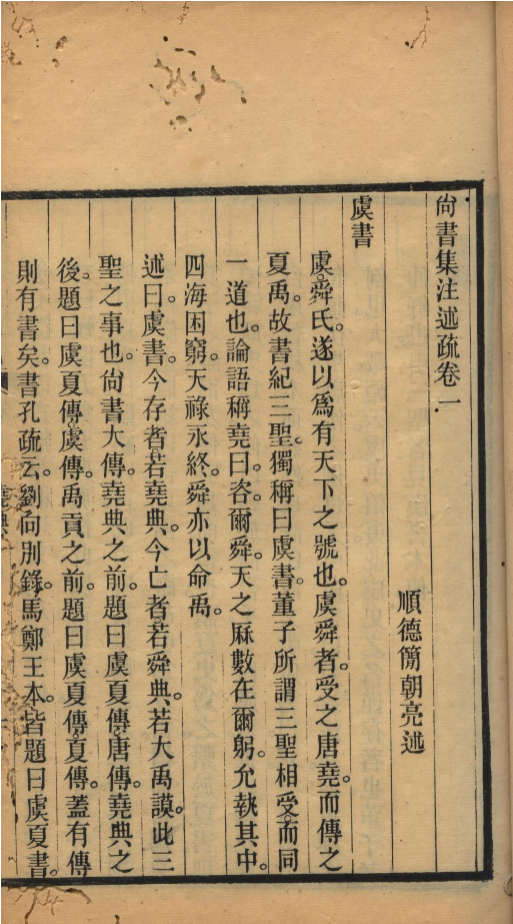 尙書集注述疏卷一
順德簡朝亮述
虞書
虞。舜氏。遂以爲有天下之號也。虞舜者。受之唐堯。而傳之
夏禹。故書紀三聖。獨稱曰虞書。董子所謂三聖相受。而同
一道也。論語稱堯曰。咨。爾舜。天之厤數在爾躬。允執其中。
四海困窮。天祿永終。舜亦以命禹。
述曰。虞書。今存者。若堯典。今亡者。若舜典。若大禹謨。此三
聖之事也。尙書大傳。堯典之前。題曰虞夏傳。唐傳。堯典之
後。題曰虞夏傳。虞傳。禹貢之前。題曰虞夏傳。夏傳。蓋有傳
則有書矣。書孔疏云。劉向別錄。馬鄭王本。皆題曰虞夏書。